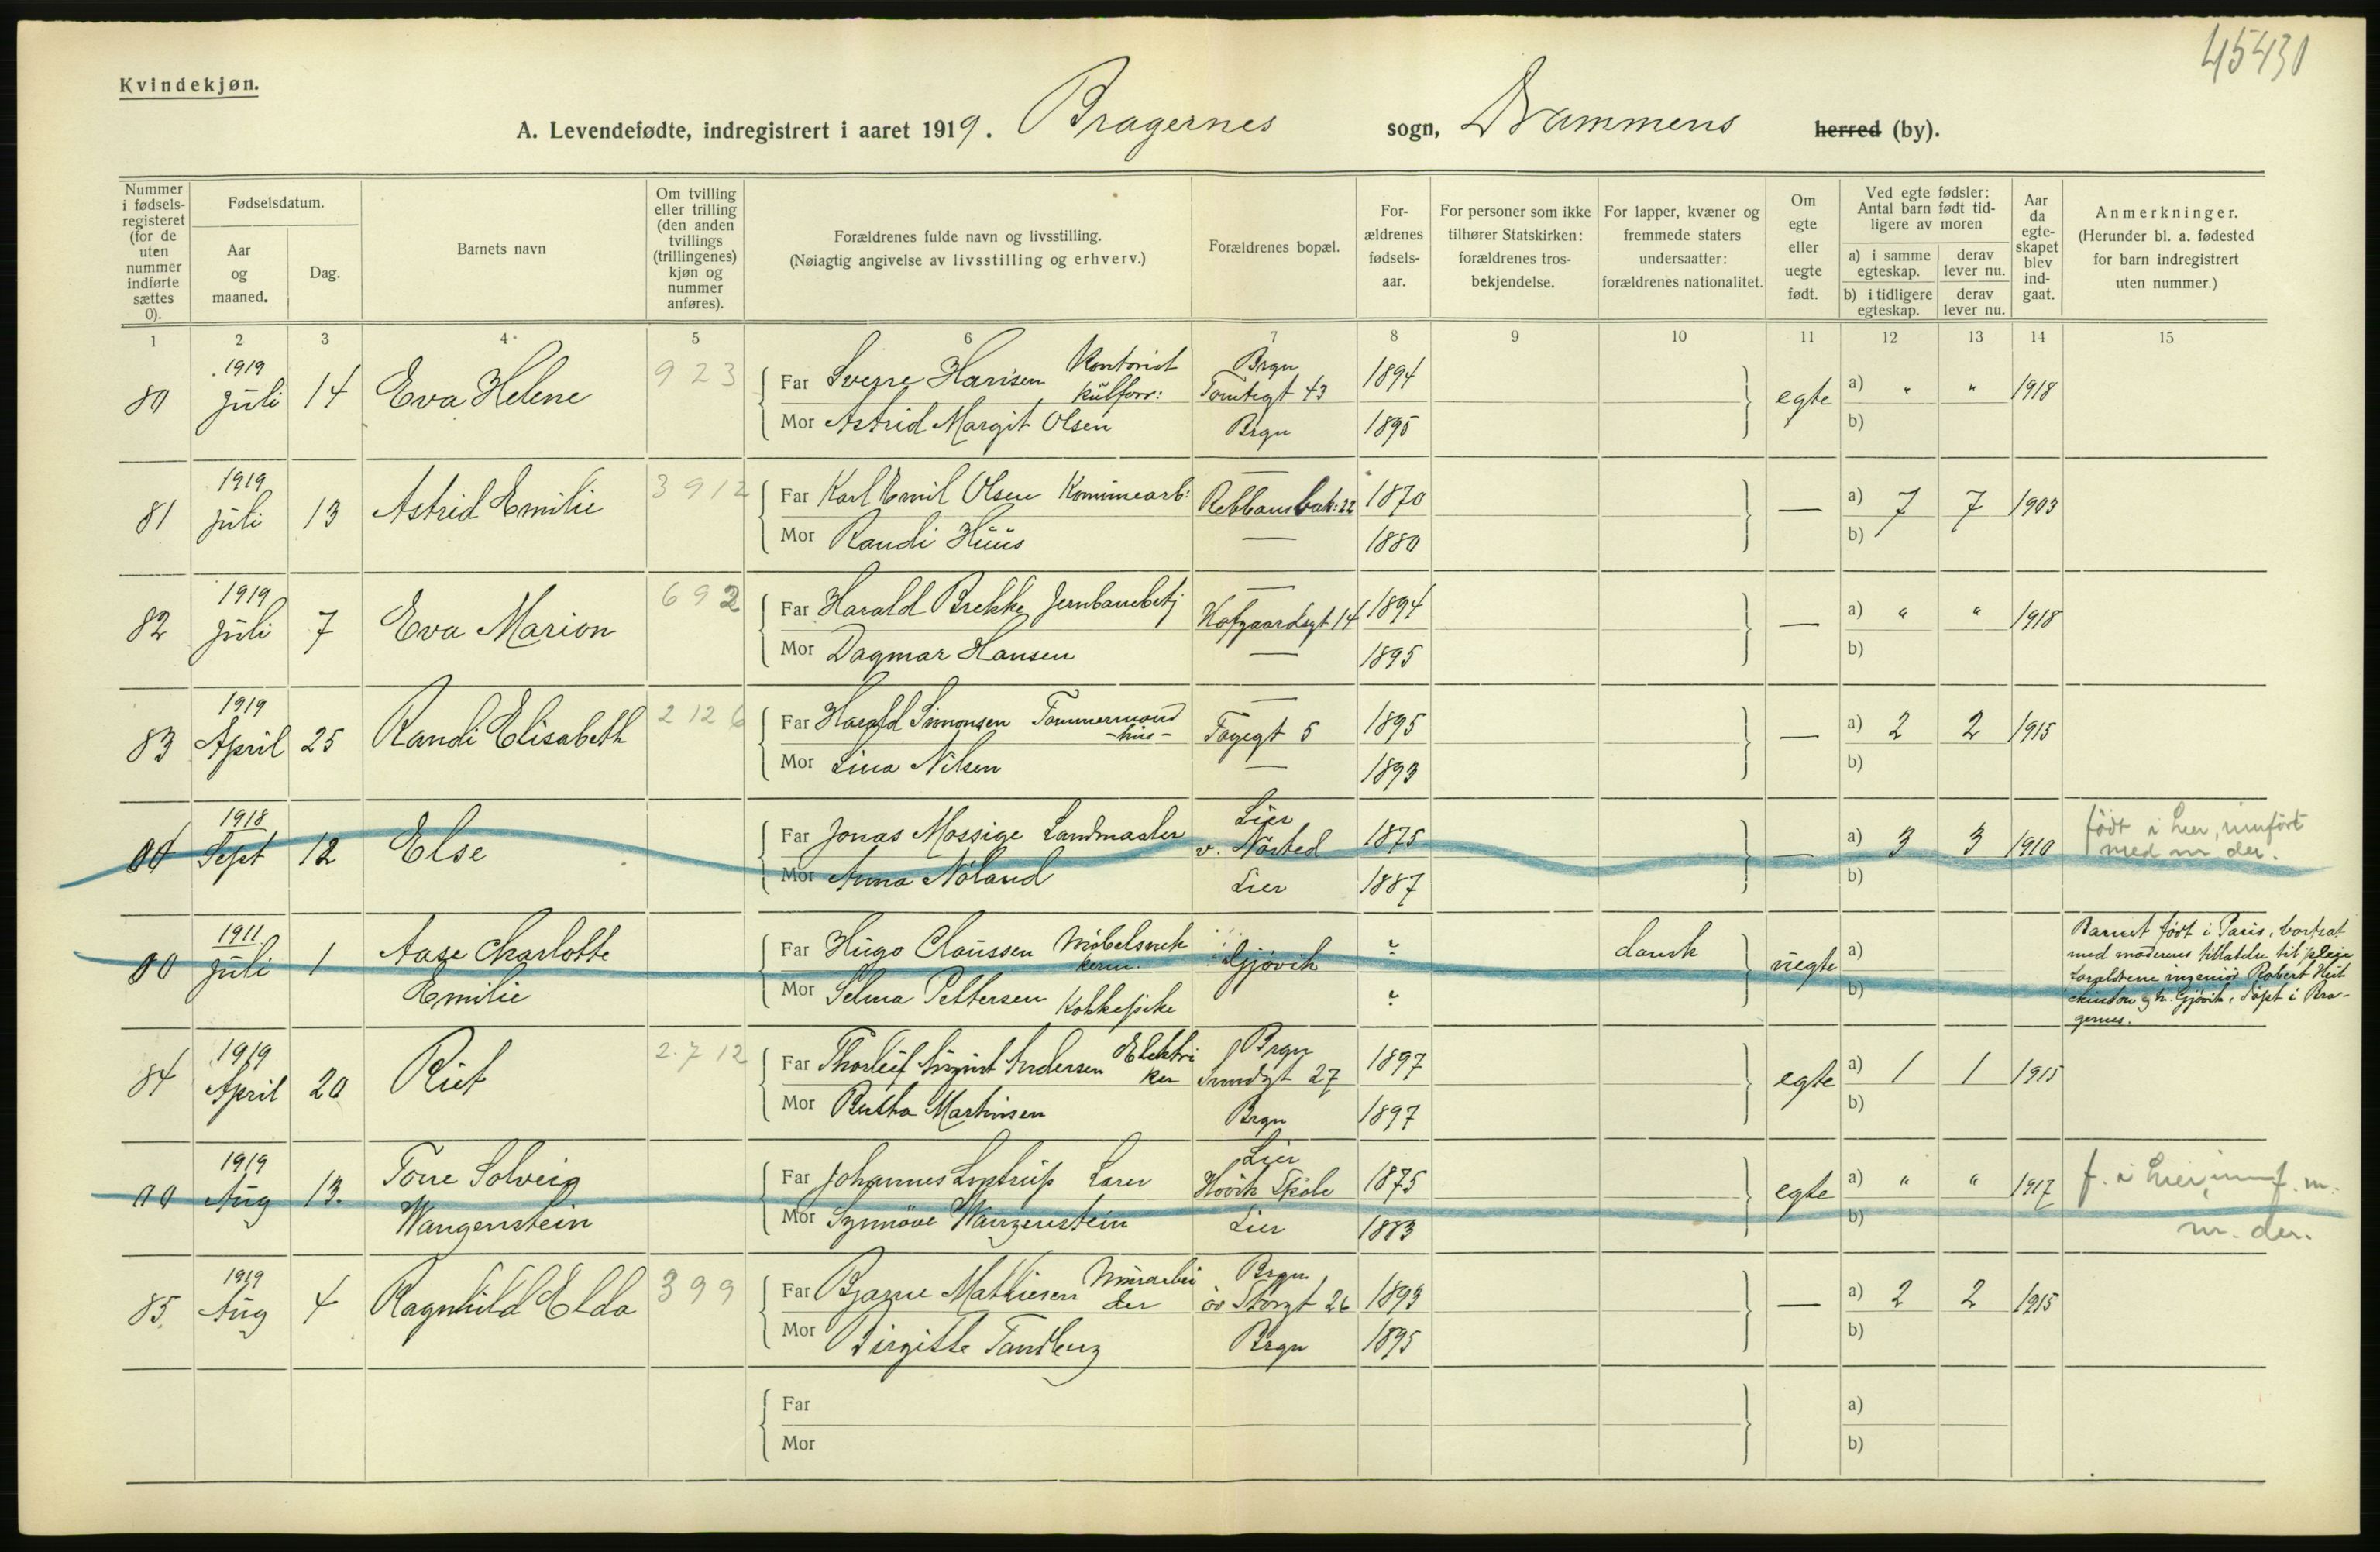 45430
Kvindekjøn.
A. Levendefødte, indregistrert i aaret 1919. Bragernes sogn, Drammens herred (by).
Nummer i fødselsregisteret (for de uten nummer indførte sættes 0).
Fødselsdatum.
Aar og maaned.
Dag.
Barnets navn
Om tvilling eller trilling (den anden tvillings (trillingenes) kjøn og nummer anføres).
Forældrenes fulde navn og livsstilling.
(Nøiagtig angivelse av livsstilling og erhverv.)
Forældrenes bopæl.
Forældrenes fødselsaar.
For personer som ikke tilhører Statskirken: forældrenes trosbekjendelse.
For lapper, kvæner og fremmede staters undersaatter: forældrenes nationalitet.
Om egte eller uegte født.
Ved egte fødsler: Antal barn født tidligere av moren
a) i samme egteskap. derav lever nu.
b) i tidligere egteskap. derav lever nu.
Aar da egteskapet blev indgaat.
Anmerkninger.
(Herunder bl. a. fødested for barn indregistrert uten nummer.)
1 2 3 4 5 6 7 8 9 10 11 12 13 14 15
80 1919 Juli 14 Eva Helene 923
Far Sverre Hansen Kontorist kulforr: Brgn Tomtegt 43 1894 egte a) " " 1918
Mor Astrid Margit Olsen Brgn 1895 b)
81 1919 Juli 13 Astrid Emilie 3912
Far Karl Emil Olsen Kommearb: Rebbansbak: 22 1870 — a) 7 7 1903
Mor Randi Huus — 1880 b)
82 1919 Juli 7 Eva Marion 692
Far Harald Brekke Jernbanebetj — Hofgaardsgt 14 1894 — a) " " 1918
Mor Dagmar Hansen — 1895 b)
83 1919 April 25 Randi Elisabeth 2126
Far Harald Simonsen Tømmermand -hus- — Fayegt 5 1895 — a) 2 2 1915
Mor Lina Nilsen — 1893 b)
00 1918 Sept 12 Else
Far Jonas Mossige Landmaaler Lier v. Nøsted 1875 — a) 3 3 1910 født i Lier, innført med nr der.
Mor Anna Nøland Lier 1887 b)
00 1911 Juli 1 Aase Charlotte Emilie
Far Hugo Claussen Møbelsnekkerm. Gjøvik ? dansk uegte a)
Mor Selma Pettersen Kokkepike ? b)
Barnet født i Paris, bortsat
med moderens tillatelse til pleie
foraldrene ingeniør Robert
Gjøvik, døpt i Bragernes.
84 1919 April 20 Rut 2.712
Far Thorleif Sigurd Andersen Elektriker Brgn Smedgt 27 1897 egte a) 1 1 1915
Mor Bertha Martinsen Brgn 1897 b)
00 1919 Aug 13. Tove Solveig Wangenstein
Far Johannes Lystrup Lærer Lier Høvik Skole 1875 egte a) " " 1917 f. i Lier, innf. m. nr. der.
Mor Synnøve Wangenstein Lier 1883 b)
85 1919 Aug 4 Ragnhild Elda 399
Far Bjarne Mathiesen Murarbeider Brgn øv Storgt 26 1893 — a) 2 2 1915
Mor Birgitte Tandberg Brgn 1895 b)
Far a)
Mor b)